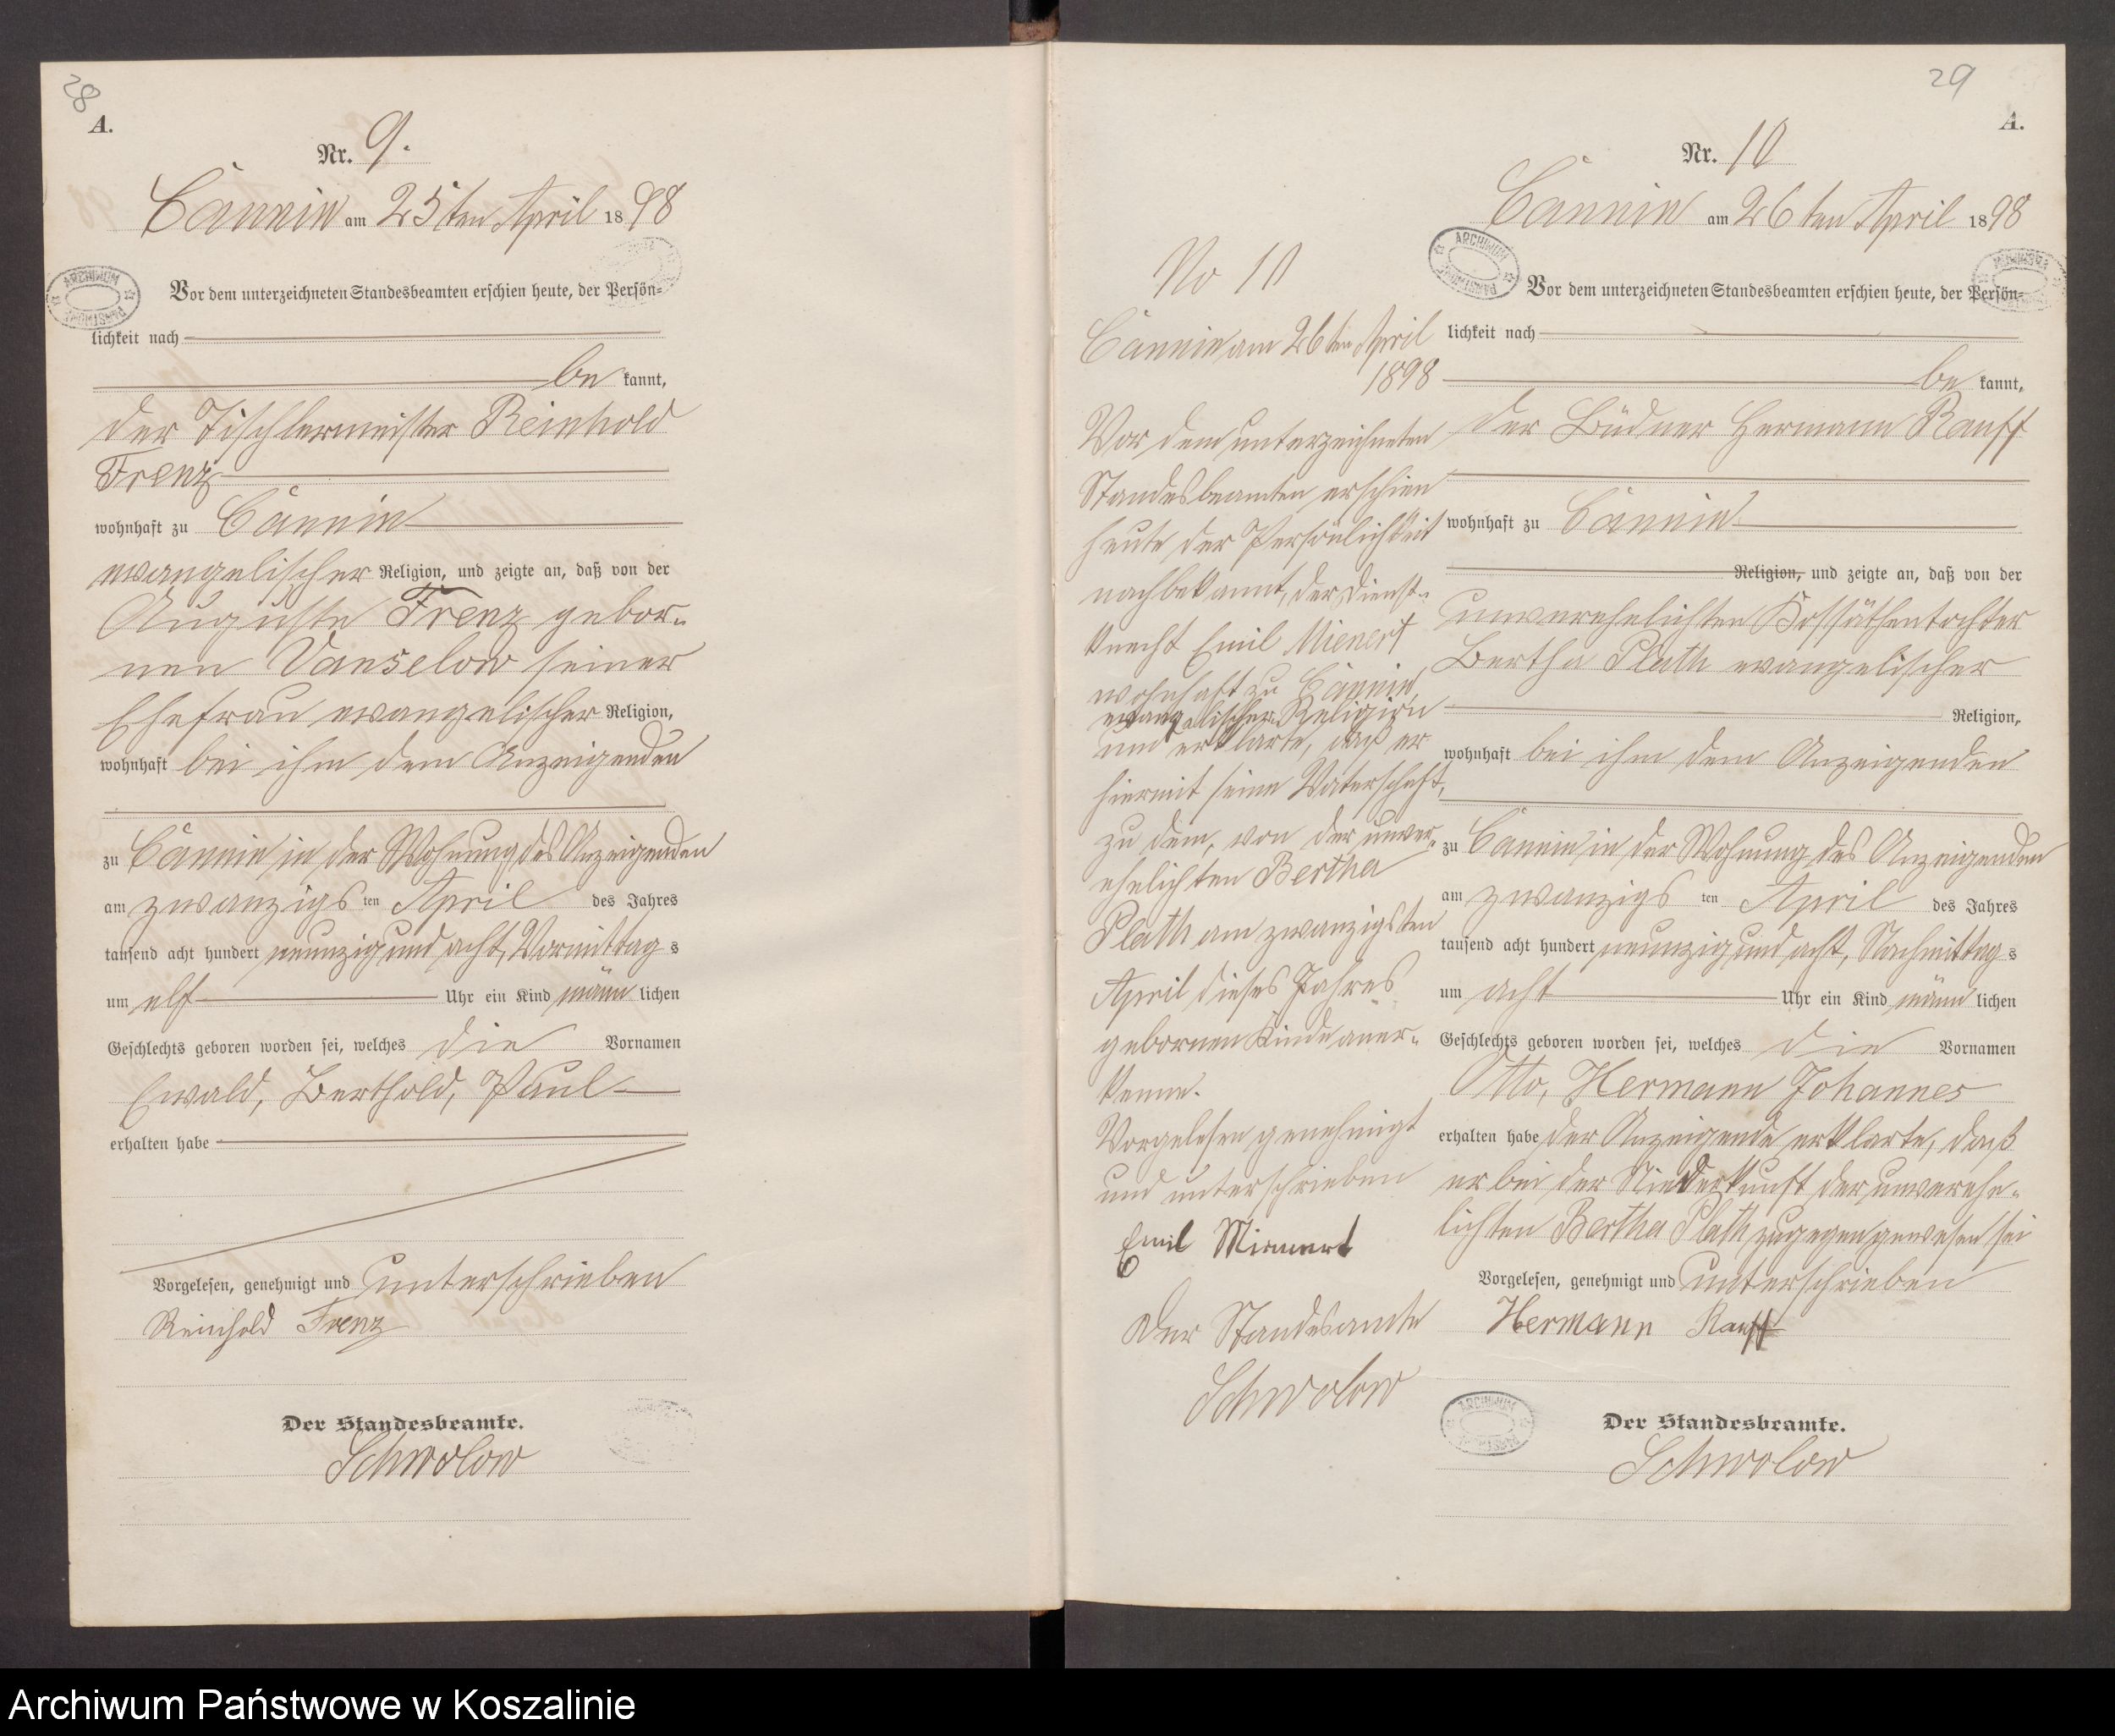 28
A.
Nr. 9.
Cannin am 25ten April 1898
Vor dem unterzeichneten Standesbeamten erschien heute, der Persön-
lichkeit nach
be kannt,
der Tischlermeister Reinhold
Frenz
wohnhaft zu Cannin
evangelischer Religion, und zeigte an, daß von der
Auguste Frenz gebor-
nen Vanselow seiner
Ehefrau evangelischer Religion,
wohnhaft bei ihm dem Anzeigenden
zu Cannin in der Wohnung des Anzeigenden
am zwanzigs ten April des Jahres
tausend acht hundert neunzig und acht, Vormittag s
um elf Uhr ein Kind männ lichen
Geschlechts geboren worden sei, welches die Vornamen
Ewald, Berthold, Paul
erhalten habe
Vorgelesen, genehmigt und unterschrieben
Reinhold Frenz
Der Standesbeamte.
Schwolow
ARCHIWUM PAŃSTWOWE
29
A.
No 10
Cannin am 26ten April
1898
Vor dem unterzeichneten
Standesbeamten erschien
heute der Persönlichkeit
nach bekannt, der Dienst-
knecht Emil Mienert
wohnhaft zu Cannin,
evangelischer Religion
und erklärte, daß er
hiermit seine Vaterschaft,
zu dem, von der unver-
ehelichten Bertha
Plath am zwanzigsten
April dieses Jahres
gebornen Kinde aner-
kenne.
Vorgelesen genehmigt
und unterschrieben
Emil Mienert
Der Standesamte
Schwolow
Nr. 10
Cannin am 26ten April 1898
Vor dem unterzeichneten Standesbeamten erschien heute, der Persön-
lichkeit nach
be kannt,
der Büdner Hermann Rauff
wohnhaft zu Cannin
Religion, und zeigte an, daß von der
unverehelichten Kossäthentochter
Bertha Plath evangelischer
Religion,
wohnhaft bei ihm dem Anzeigenden
zu Cannin in der Wohnung des Anzeigenden
am zwanzigs ten April des Jahres
tausend acht hundert neunzig und acht, Nachmittag s
um acht Uhr ein Kind männ lichen
Geschlechts geboren worden sei, welches die Vornamen
Otto, Hermann Johannes
erhalten habe der Anzeigende erklarte, daß
er bei der Niederkunft der unverehe-
lichten Bertha Plath zugegen gewesen sei
Vorgelesen, genehmigt und unterschrieben
Hermann Rauff
Der Standesbeamte.
Schwolow
ARCHIWUM PAŃSTWOWE
Archiwum Państwowe w Koszalinie